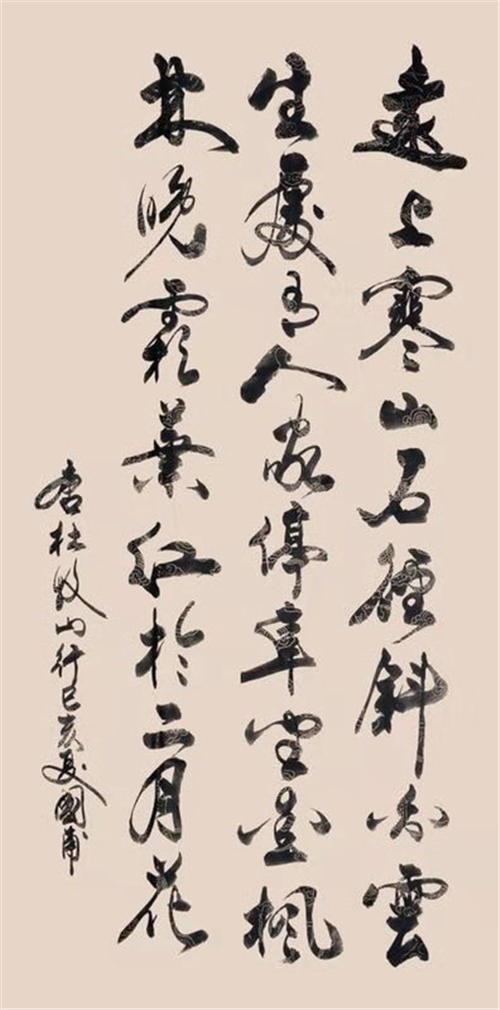 遠上寒山石徑斜白雲
生處有人家停車坐愛楓
林晚霜葉紅於二月花
唐杜牧山行己亥夏國甫